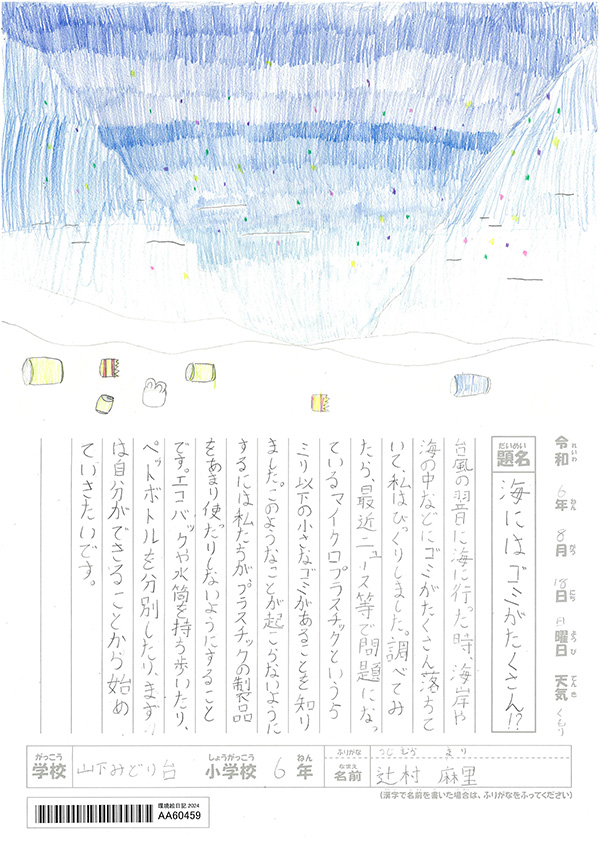 令和 6年 8月 18日 日曜日 天気 くもり
れいわ ねん がつ にち ようび てんき
だいめい
題名 海にはゴミがたくさん!?
台風の翌日に海に行った時、海岸や
海の中などにゴミがたくさん落ちて
いて、私はびっくりしました。調べてみ
たら、最近ニュース等で問題になっ
ているマイクロプラスチックという5
ミリ以下の小さなゴミがあることを知り
ました。このようなことが起こらないように
するには私たちがプラスチックの製品
をあまり使ったりしないようにすること
です。エコバックや水筒を持ち歩いたり、
ペットボトルを分別したり、まず
は自分ができることから始め
ていきたいです。
がっこう しょうがっこう ねん
学校 山下みどり台 小学校 6年
ふりがな つじむら まり
なまえ
名前 辻村 麻里
(漢字で名前を書いた場合は、ふりがなをふってください)
環境絵日記 2024
AA60459